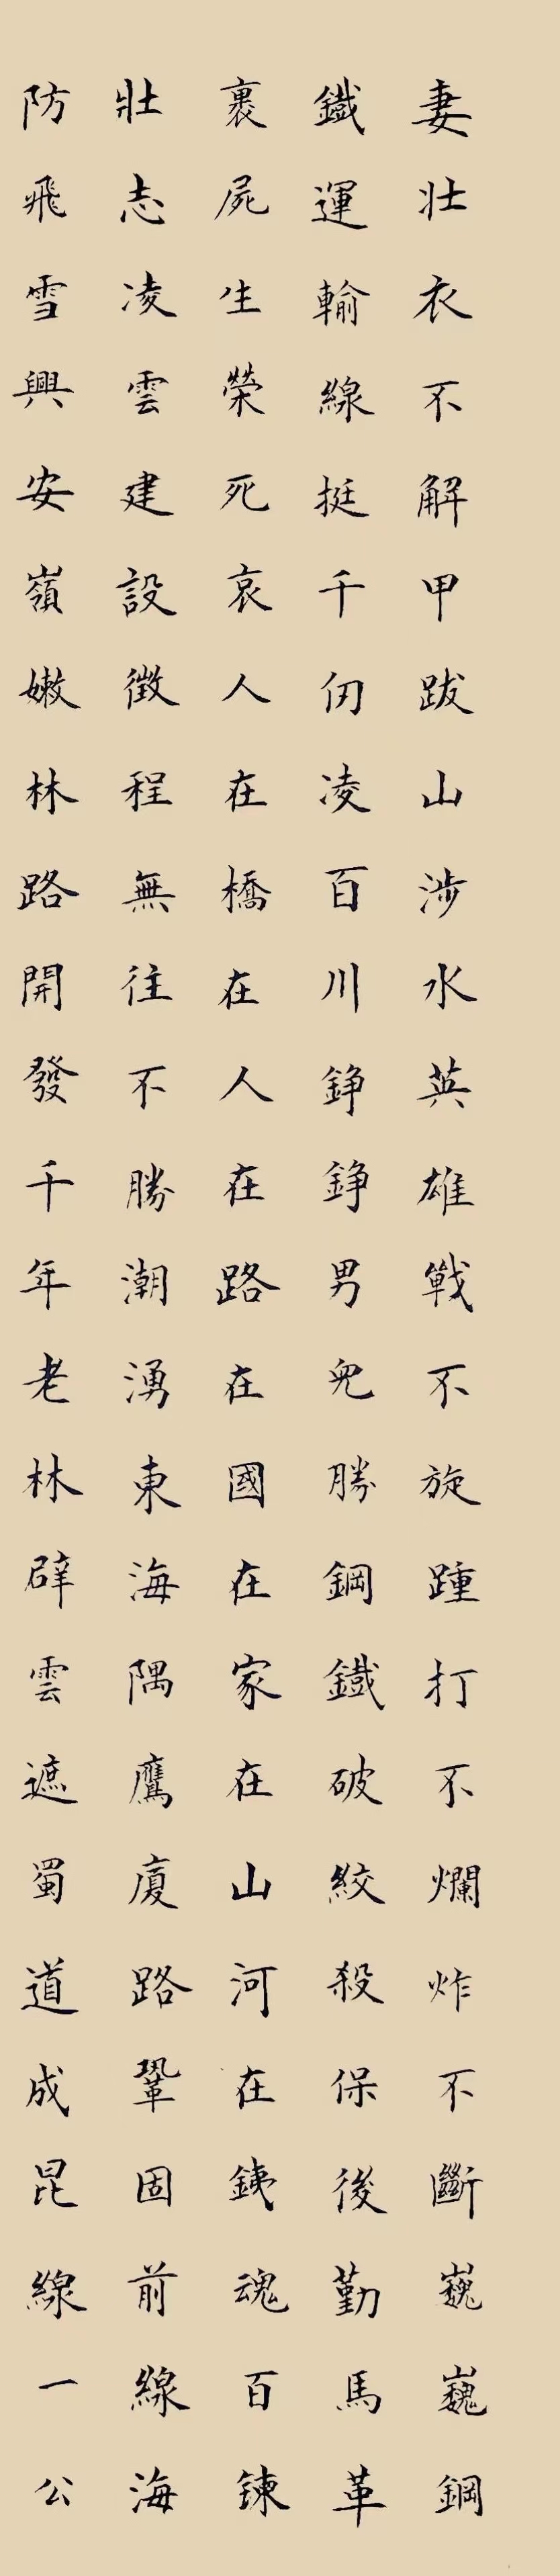 妻壯衣不解甲跋山涉水英雄戰不旋踵打不爛炸不斷巍巍鋼
鐵運輸線挺千仞凌百川錚錚男兒勝鋼鐵破絞殺保後勤馬革
裹屍生榮死哀人在橋在人在路在國在家在山河在銕魂百鍊
壯志凌雲建設徵程無往不勝潮湧東海隅鷹廈路鞏固前線海
防飛雪興安嶺嫩林路開發千年老林辟雲遮蜀道成昆線一公